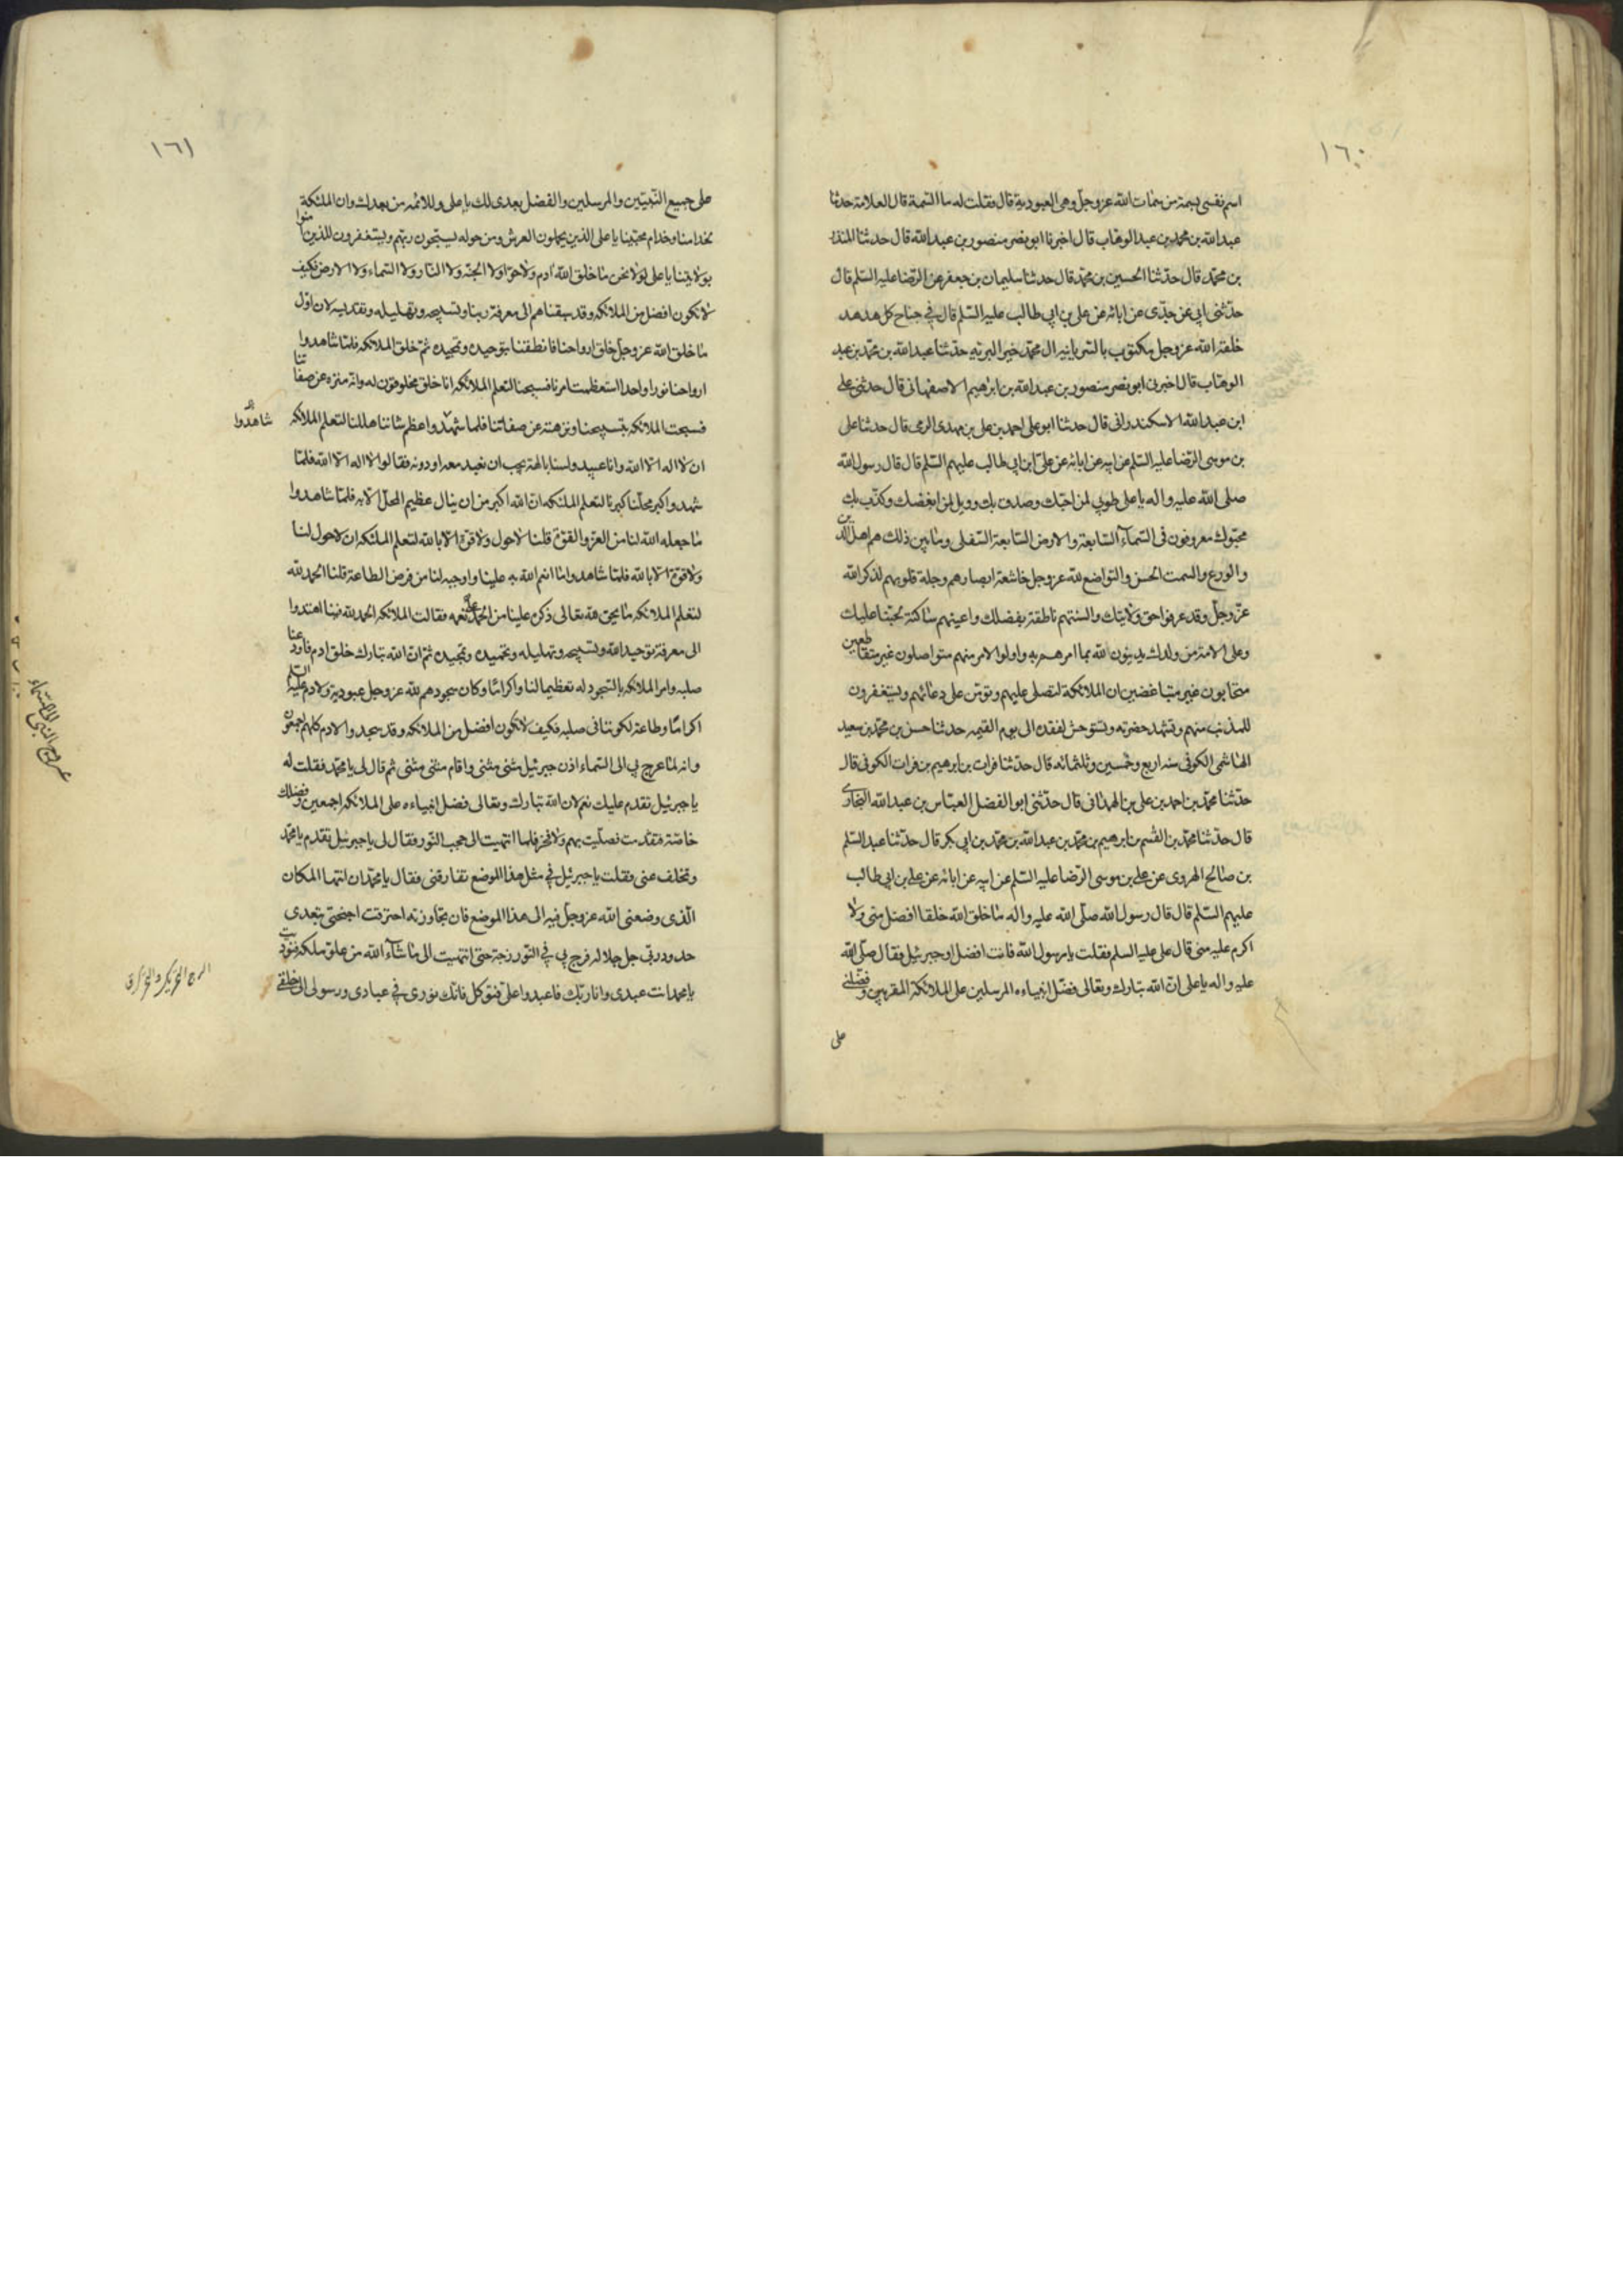 ١٦٠
اسم نفسى بسمة من سمات الله عزوجل وهى العبودية قال فقلت له ما السمة قال العلامة حدثنا
عبد الله بن محمد بن عبد الوهاب قال اخبرنا ابو نصر منصور بن عبد الله قال حدثنا المنذر
بن محمد قال حدثنا الحسين بن محمد قال حدثنا سليمان بن جعفر عن الرضا عليه السلم قال
حدثنى ابى عن جدى عن ابائه عن على بن ابى طالب عليه السلم قال فى جناح كل هدهد
خلقه الله عزوجل مكتوب بالسريانية ال محمد خير البريه حدثنا عبد الله بن محمد بن عبد
الوهاب قال اخبرنى ابو نصر منصور بن عبد الله بن ابراهيم الاصفهانى قال حدثنى على
ابن عبد الله الاسكندرانى قال حدثنا ابو على احمد بن على بن مهدى الرمى قال حدثنا على
بن موسى الرضا عليه السلم عن ابيه عن ابائه عن على ابن ابى طالب عليهم السلم قال قال رسول الله
صلى الله عليه واله يا على طوبى لمن احبك وصدق بك وويل لمن ابغضك وكذب بك
محبوك معروفون فى السمآء السابعة والارض السابعة السفلى وما بين ذلك هم اهل الدين
والورع والسمت الحسن والتواضع لله عزوجل خاشعة ابصارهم وجلة قلوبهم لذكر الله
عزوجل وقد عرفوا حق ولايتك والسنتهم ناطقة بفضلك واعينهم ساكبة تحننا عليك
وعلى الائمة من ولدك يدينون الله بما امرهم به واولوا الامر منهم متواصلون غير متقاطعين
متحابون غير متباغضين ان الملائكة لتصلى عليهم وتؤمن على دعائهم ويستغفرون
للمذنب منهم وتشهد حضرته وتستوحش لفقده الى يوم القيمه حدثنا حسن بن محمد بن سعيد
الهاشمى الكوفى سنه اربع وخمسين وثلثمائه قال حدثنا فرات بن ابرهيم بن فرات الكوفى قال
حدثنا محمد بن احمد بن على بن الهمدانى قال حدثنى ابو الفضل العباس بن عبد الله البخارى
قال حدثنا محمد بن القسم بن ابرهيم بن محمد بن عبد الله بن محمد بن ابى بكر قال حدثنا عبد السلم
بن صالح الهروى عن على بن موسى الرضا عليه السلم عن ابيه عن ابائه عن على بن ابى طالب
عليهم السلم قال قال رسول الله صلى الله عليه واله ما خلق الله خلقا افضل منى ولا
اكرم عليه منى قال على عليه السلم فقلت يا رسول الله فانت افضل او جبرئيل فقال صلى الله
عليه واله يا على ان الله تبارك وتعالى فضل انبياءه المرسلين على الملائكة المقربين وفضلنى
على
١٦١
على جميع النبيين والمرسلين والفضل بعدى لك يا على وللائمه من بعدك وان الملئكة
لخدامنا وخدام محبينا يا على الذين يحملون العرش ومن حوله يسبحون ربهم ويستغفرون للذين امنوا
بولايتنا يا على لولا نحن ما خلق الله ادم ولا حوا ولا الجنه ولا النار ولا السماء ولا الارض فكيف
لا نكون افضل من الملائكه وقد سبقناهم الى معرفة ربنا وتسبيحه وتهليله وتقديسه لان اول
ما خلق الله عزوجل خلق ارواحنا فانطقنا بتوحيده وتمجيده ثم خلق الملائكه فلما شاهدوا
ارواحنا نورا واحدا استعظمت امرنا فسبحنا لتعلم الملائكه انا خلق مخلوقون له وانه منزه عن صفاتنا
فسبحت الملائكه بتسبيحنا ونزهته عن صفاتنا فلما شهدوا عظم شاننا هللنا لتعلم الملائكه
شاهدوا
ان لا اله الا الله وانا عبيد ولسنا بالهة يجب ان نعبد معه او دونه فقالوا لا اله الا الله فلما
شهدوا كبر محلنا كبرنا لتعلم الملئكه ان الله اكبر من ان ينال عظيم المحل الا به فلما شاهدوا
ما جعله الله لنا من العز والقوة قلنا لا حول ولا قوة الا بالله لتعلم الملئكه ان لا حول لنا
ولا قوة الا بالله فلما شاهدوا ما انعم الله به علينا واوجبه لنا من فرض الطاعة قلنا الحمد لله
لتعلم الملائكه ما يحق لله تعالى ذكره علينا من الحمد على نعمه فقالت الملائكه الحمد لله فبنا اهتدوا
الى معرفة توحيد الله وتسبيحه وتهليله وتحميده وتمجيده ثم ان الله تبارك خلق ادم فاودعنا
صلبه وامر الملائكه بالسجود له تعظيما لنا واكراما وكان سجودهم لله عزوجل عبودية ولادم عليه السلم
اكراما وطاعة لكوننا فى صلبه فكيف لا نكون افضل من الملائكه وقد سجدوا لادم كلهم اجمعون
وانه لما عرج بى الى السماء اذن جبرئيل مثنى مثنى واقام مثنى مثنى ثم قال لى يا محمد فقلت له
يا جبرئيل تقدم عليك نعم لان الله تبارك وتعالى فضل انبياءه على الملائكه اجمعين وفضلك
خاصة فتقدمت فصليت بهم ولا فخر فلما انتهيت الى حجب النور فقال لى يا جبرئيل تقدم يا محمد
وتخلف عنى فقلت يا جبرئيل فى مثل هذا الموضع تفارقنى فقال يا محمد ان انتها المكان
الذى وضعنى الله عزوجل فيه الى هذا الموضع فان تجاوزته احترقت اجنحتى بتعدى
حدود ربى جل جلاله فزج بى فى النور زجة حتى انتهيت الى ما شآء الله من علو ملكه فنوديت
يا محمد انت عبدى وانا ربك فاعبد وعلى فتوكل فانك نورى فى عبادى ورسولى الى خلقى
عروج النبى للسماء